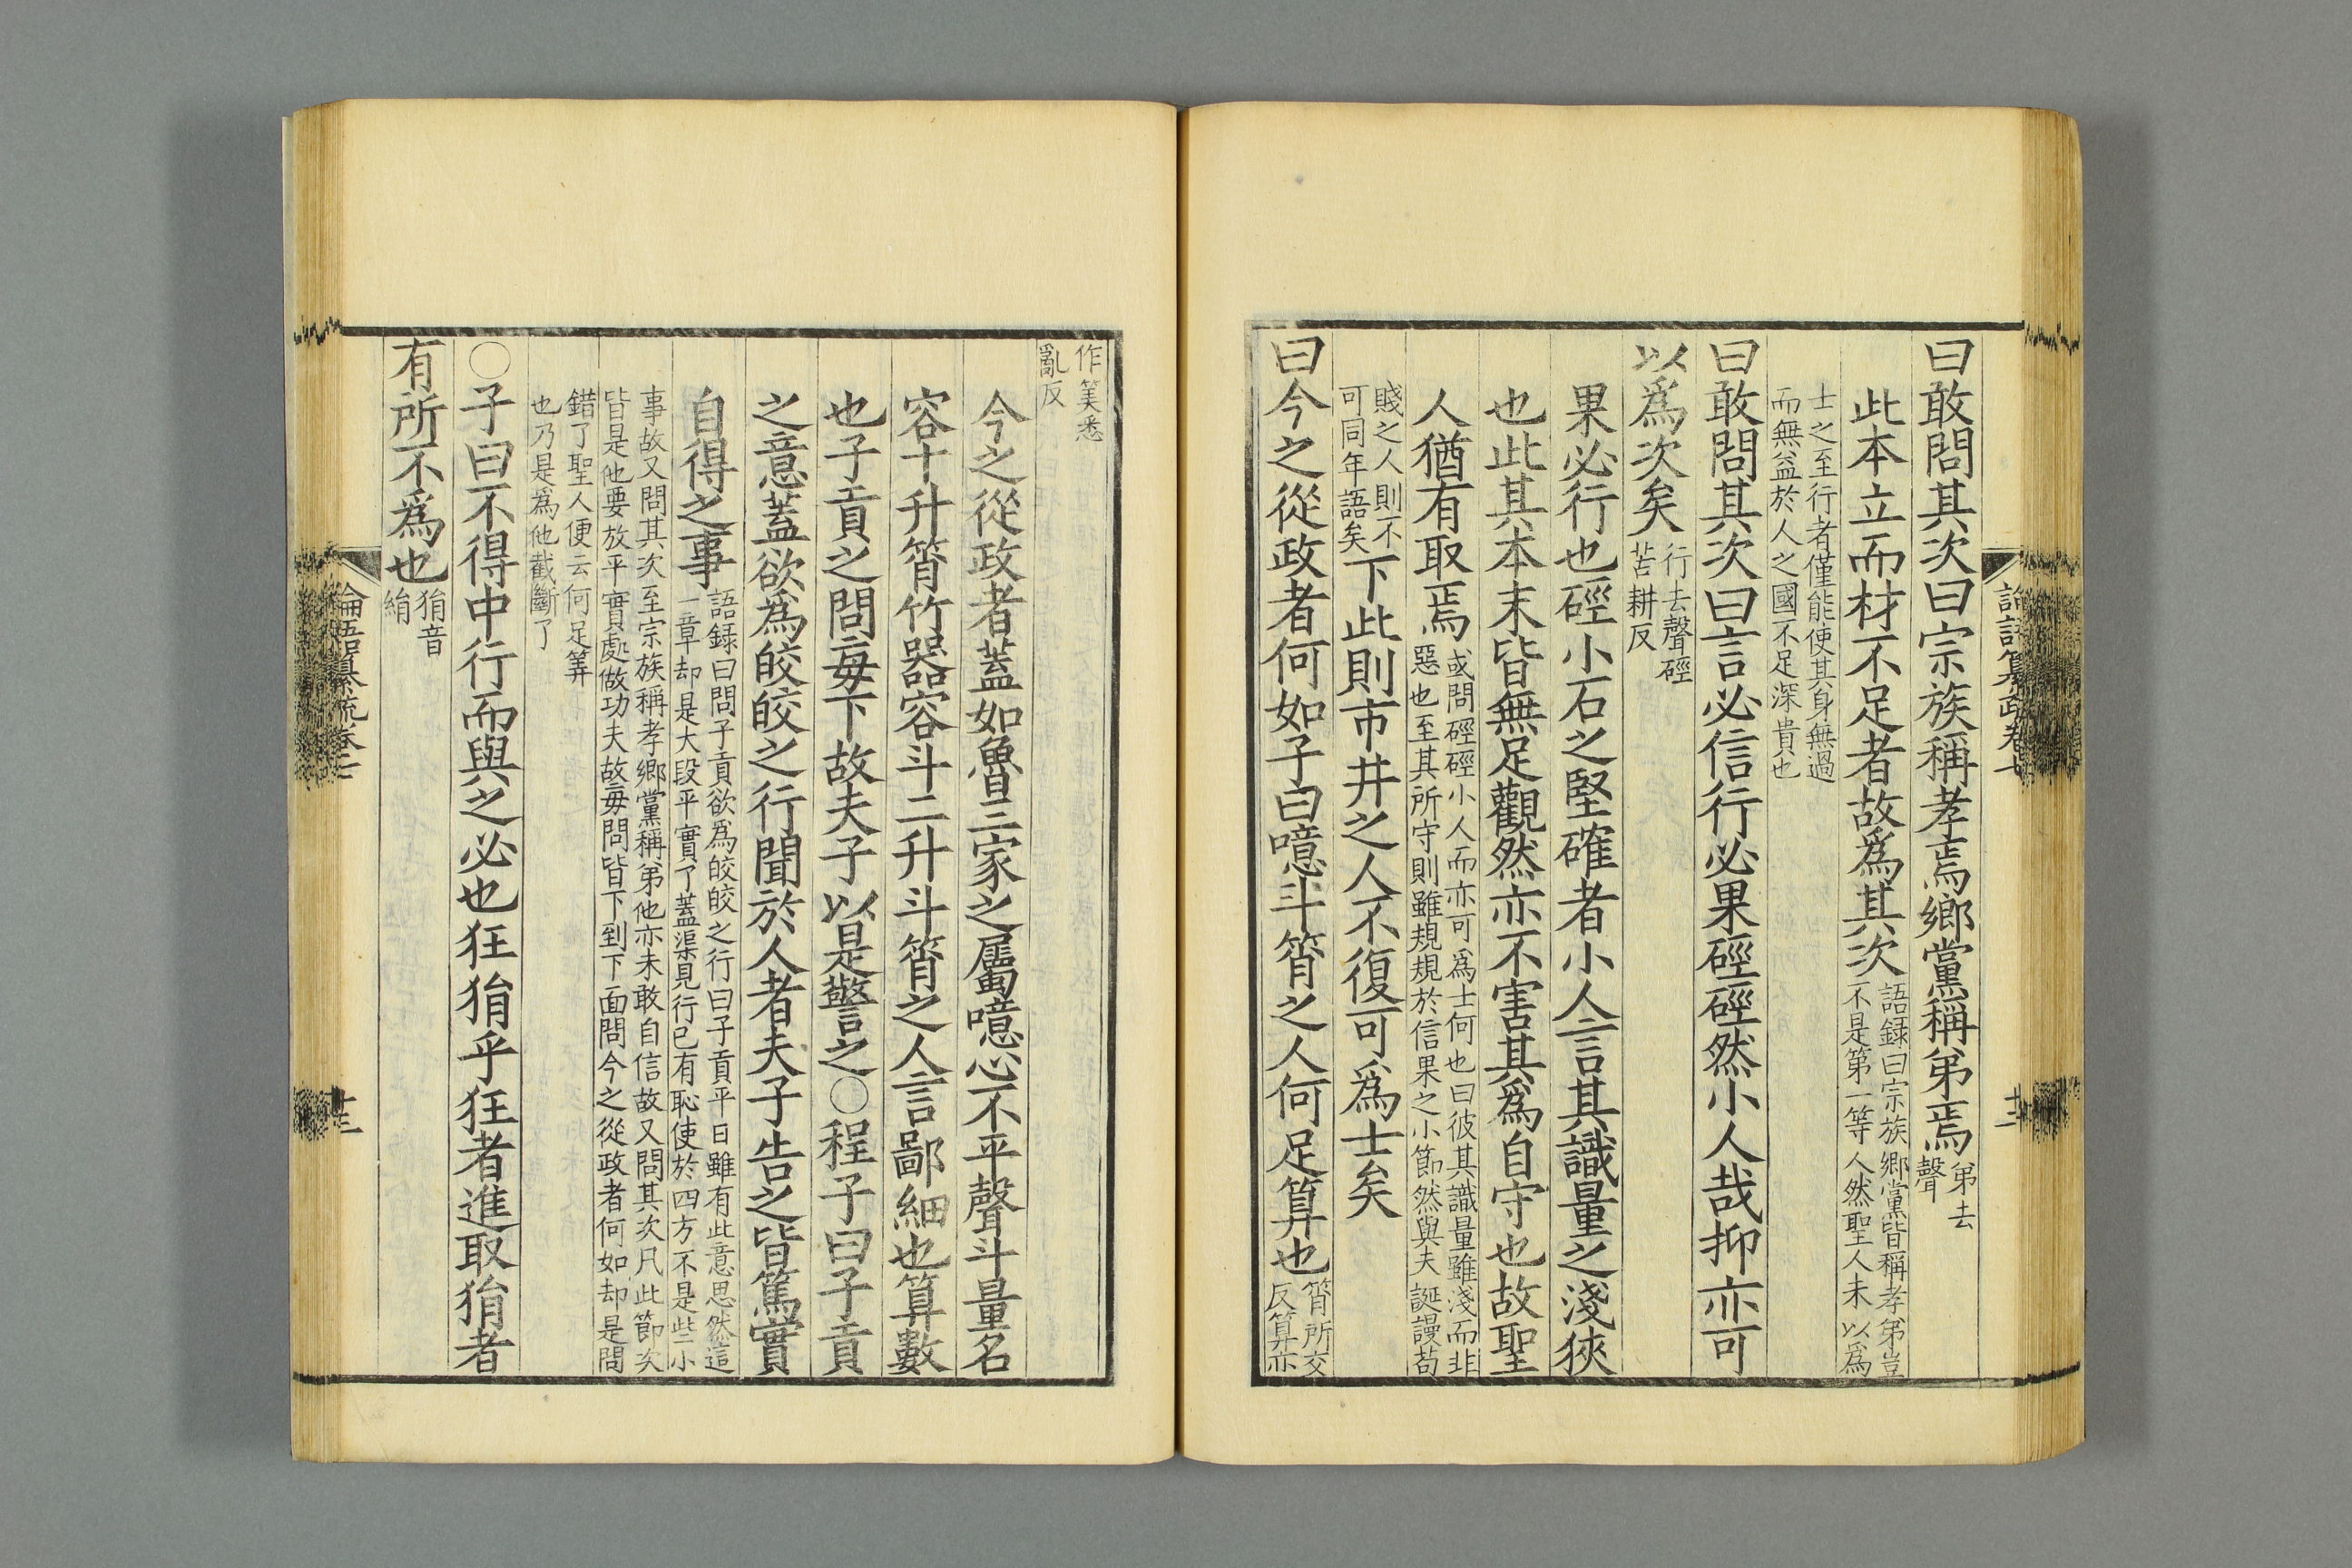 曰敢問其次曰宗族稱孝焉鄉黨稱弟焉弟去聲
此本立而材不足者故爲其次語録曰宗族鄉黨皆稱孝弟豈不是第一等人然聖人未以爲
士之至行者僅能使其身無過而無益於人之國不足深貴也
曰敢問其次曰言必信行必果硜硜然小人哉抑亦可
以爲次矣行去聲硜苦耕反
果必行也硜小石之堅確者小人言其識量之淺狹
也此其本末皆無足觀然亦不害其爲自守也故聖
人猶有取焉或問硜硜小人而亦可爲士何也曰彼其識量雖淺而非惡也至其所守則雖規規於信果之小節然與夫誕謾苟
賤之人則不可同年語矣下此則市井之人不復可爲士矣
曰今之從政者何如子曰噫斗筲之人何足算也筲所交反算亦
作筭悉亂反
今之從政者蓋如魯三家之屬噫心不平聲斗量名
容十升筲竹器容斗二升斗筲之人言鄙細也算數
也子貢之問每下故夫子以是警之〇程子曰子貢
之意蓋欲爲皎皎之行聞於人者夫子告之皆篤實
自得之事語録曰問子貢欲爲皎皎之行曰子貢平日雖有此意思然這一章却是大段平實了蓋渠見行已有恥使於四方不是些小
事故又問其次至宗族稱孝鄉黨稱弟他亦未敢自信故又問其次凡此節次皆是他要放平實處做功夫故每問皆下到下面問今之從政者何如却是問
錯了聖人便云何足筭也乃是爲他截斷了
〇子曰不得中行而與之必也狂狷乎狂者進取狷者
有所不爲也狷音絹
論語纂疏卷七
十二
論語纂疏卷七
十三